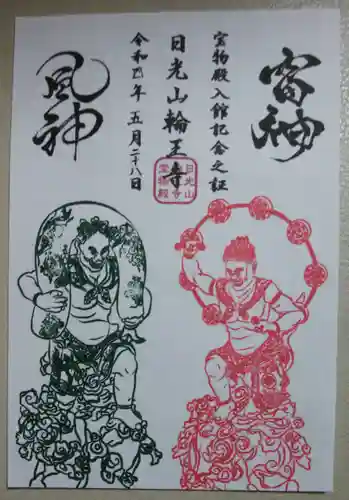 雷神
宝物殿入館記念之証
日光山輪王寺
令和四年五月二十八日
風神
日光山
宝物殿